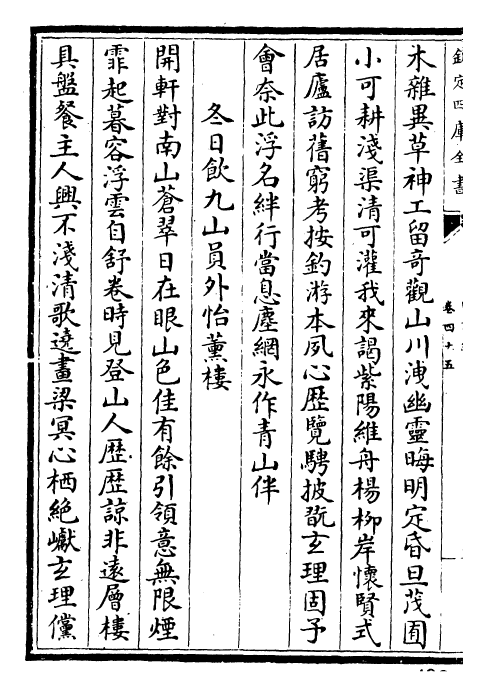 欽定四庫全書
卷四十五
木雜異草神工留奇觀山川洩幽靈晦明定昏旦茂囿
小可耕淺渠清可灌我來謁紫陽維舟楊柳岸懷賢式
居廬訪舊窮考按釣游本夙心歴覽騁披翫玄理固予
㑹奈此浮名絆行當息塵網永作青山伴
冬日飲九山員外怡薰樓
開軒對南山蒼翠日在眼山色佳有餘引領意無限煙
霏起暮容浮雲自舒卷時見登山人歴歴諒非遠層樓
具盤餐主人興不淺清歌遶畫梁冥心栖絶巘玄理儻